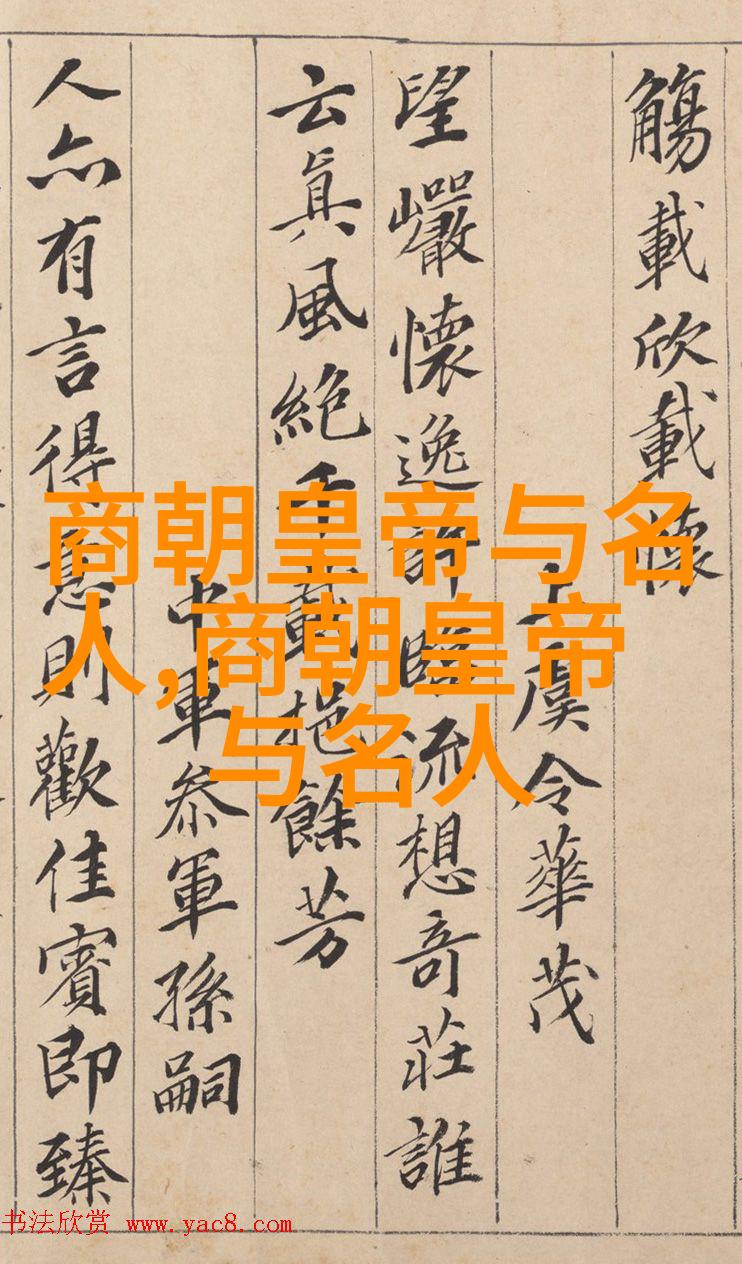 觴載欣載懷
上虞令華茂
望巗懷逸許臨流想奇莊誰
云眞風絕千載挹餘芳
中軍叅軍孫嗣
人亦有言得意則歡佳賓即臻
商朝皇帝与名
人,商朝皇帝
与名人
书法欣赏 www.yac8.com